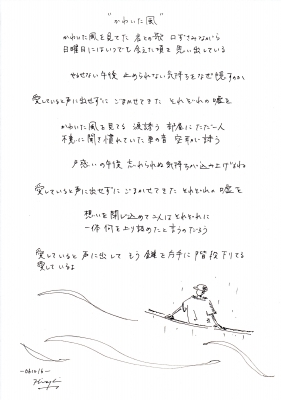 "かわいた風"
かわいた風を見てた 君との歌 口ずさみながら
日曜日にはいつでも会えた頃を 思い出している
やるせない午後 止められない気持ちをなぜ隠すのか
愛していると声に出せずに ごまかせてきた それぞれの嘘を
かわいた風を見てる 波誘う 部屋にただ一人
不意に聞き慣れていた車の音 空耳が誘う
戸惑いの午後 忘れられぬ気持ちが込み上げるね
愛していると声に出せずに ごまかせてきた それぞれの嘘を
想いを閉じ込めて二人はそれぞれに
一体何を上り詰めたと言うのだろう
愛していると 声に出して もう 鍵を片手に 階段下りてる
愛しているよ